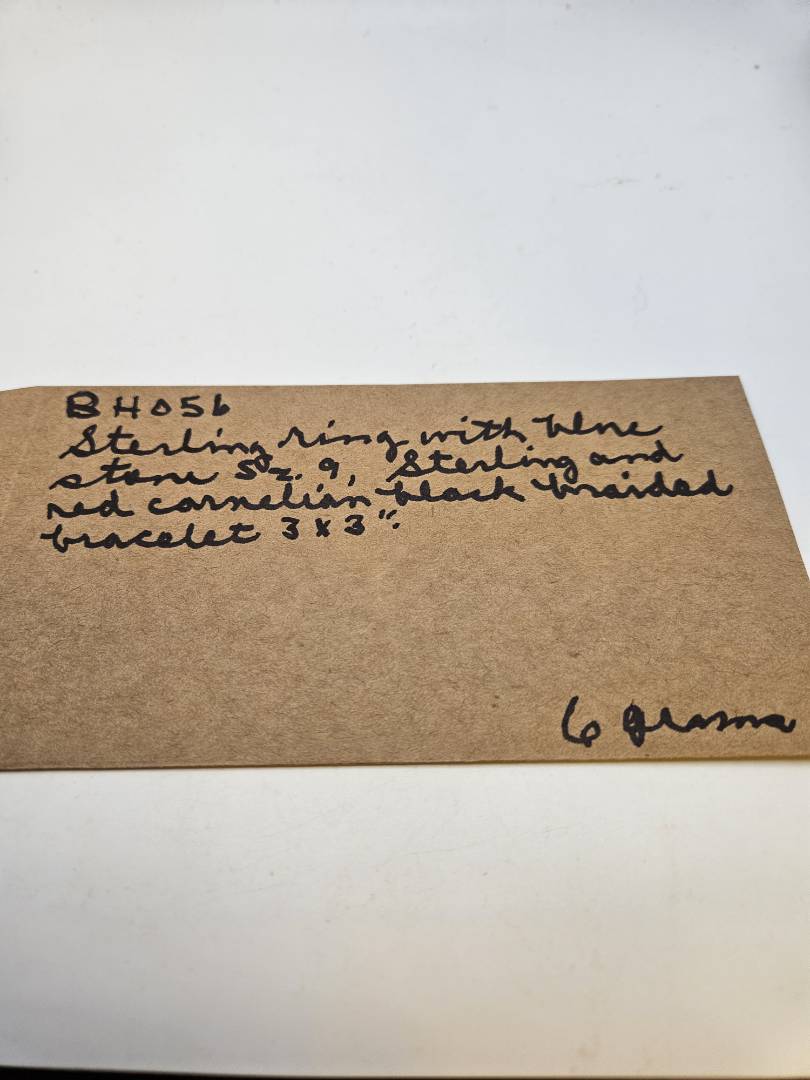 BH056
Sterling ring with blue
stone Sz. 9, Sterling and
red cornelian black braided
bracelet 3 x 3".
6 grams